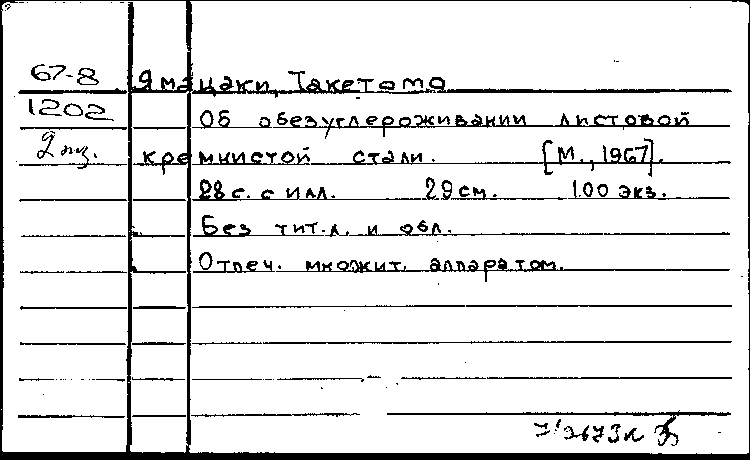 67-8 Ямацаки, Такетомо
1202 Об обезуглероживании листовой
2 экз. кремнистой стали. [М., 1967].
28 с. с илл. 29 см. 100 экз.
Без тит. л. и обл.
Отпеч. множит. аппаратом.